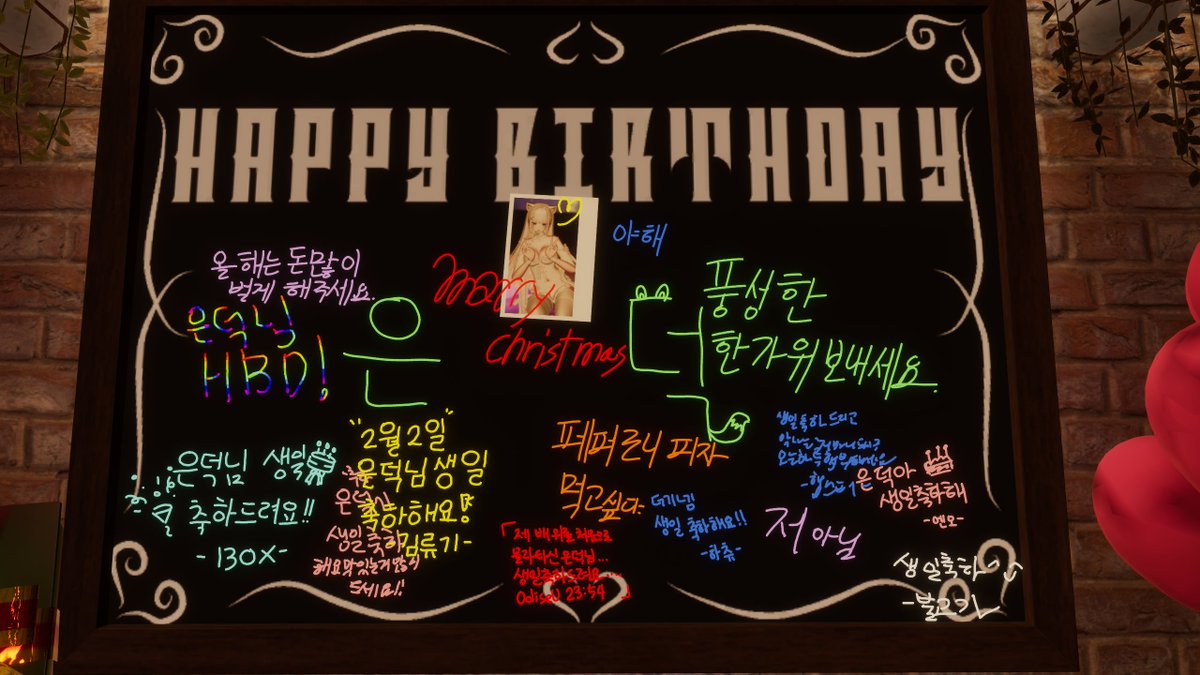 HAPPY BIRTHDAY
야해
올해는 돈많이
벌게 해주세요.
은덕님
HBD!
은
덕
merry
christmas
풍성한
한가위보내세요.
은덕님 생일
축하드려요!!
-130X-
"2월2일"
은덕님생일
축하해요!
김류기-
은덕님
생일축하
해요 맛있는거 많이
드세요!!
페퍼로니 피자
먹고싶다.
「제 배 위를 처음으로
올라타신 은덕님...
생일축하드려요...
Odiseu 23:54 」
생일 축하해요!!
-하츄-
생일축하드리고
저 아님
은덕아
생일축하해
-옌모-
생일축하
-불고기